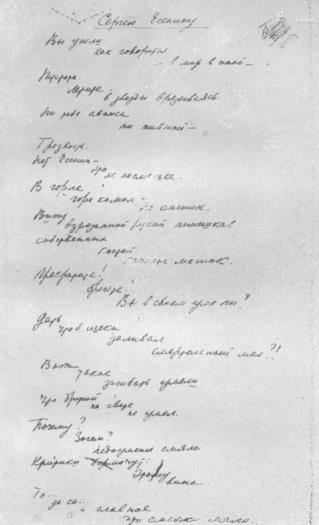 Сергею Есенину
Вы ушли
как говорится
в мир в иной
Пустота
Летите
в звезды врезываясь
Ни тебе аванса
ни пивной —
Трезвость.
Нет Есенин —
это не насмешка.
В горле
горе комом —
не смешок.
Вижу
взрезанной рукой помешкав
собственных
костей
качаете мешок.
Прекратите!
Бросьте!
Вы в своем уме ли?
Дать
чтоб щеки
заливал
смертельный мел?!
Вы ж
такое
загибать умели
что другой
на свете
не умел.
Почему?
Зачем?
недоуменье смяло
Критики бормочут:
Этому
вина
То...
да се...
а главное
что смычки мало